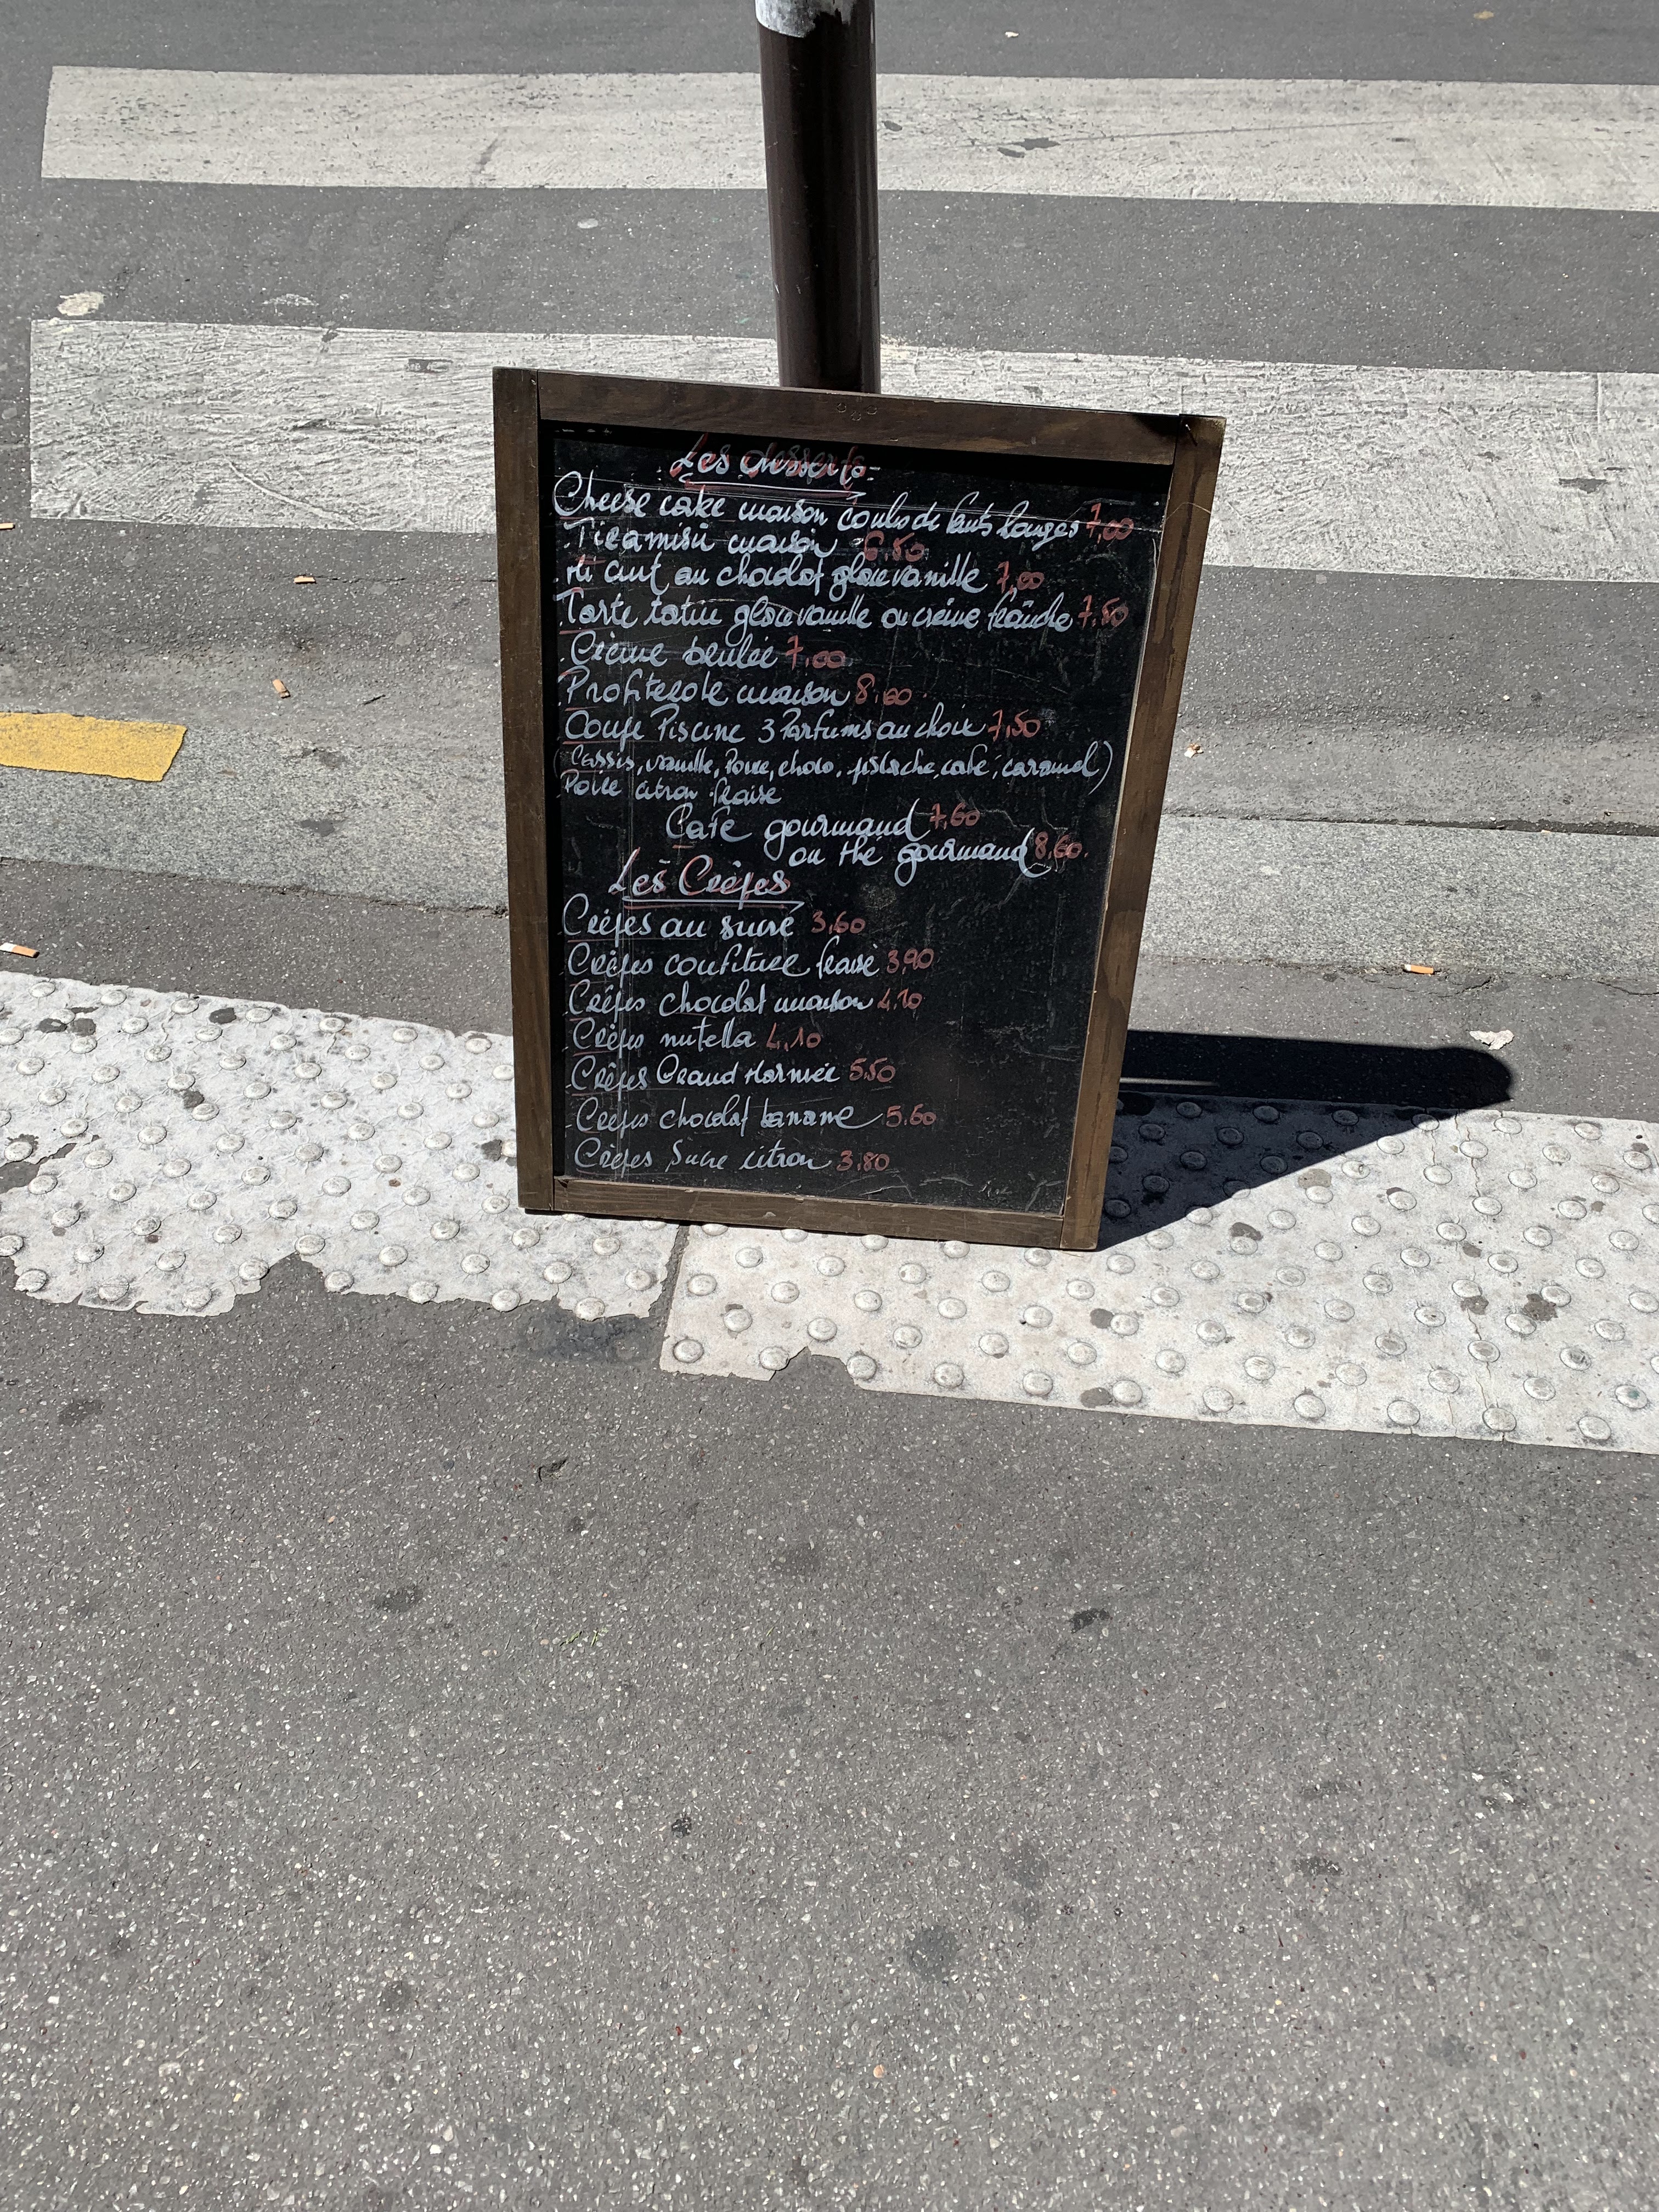 Les desserts
Cheese cake maison coulis de fruits rouges 7,00
Tiramisù maison 6.50
Mi cuit au chocolat glace vanille 7,00
Tarte tatin glace vanille ou crème fraîche 7.50
Crème brulée 7,00
Profiterole maison 8,00
Coupe Piscine 3 Parfums au choix 7,50
(Cassis, vanille, choco, pistache, café, caramel)
Poire citron fraise
Café gourmand 7,60
ou thé gourmand 8.60
Les Crêpes
Crêpes au sucre 3,60
Crêpes confiture fraise 3,90
Crêpes chocolat maison 4,10
Crêpes nutella 4,10
Crêpes Grand Marnier 5.50
Crêpes chocolat banane 5.60
Crêpes Sucre citron 3.80